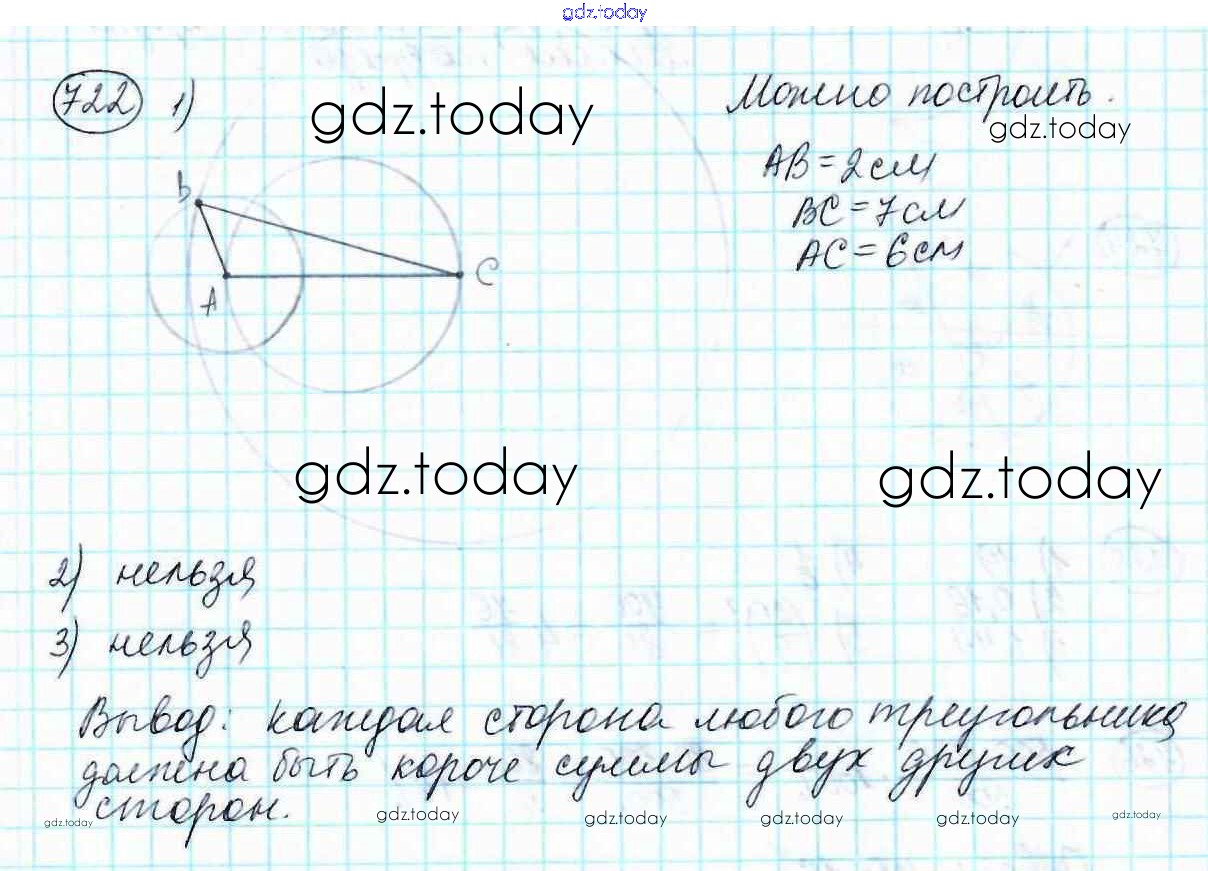 gdz.today
722 1)
gdz.today
Можно построить.
gdz.today
AB = 2 см
BC = 7 см
AC = 6 см
B
A
C
gdz.today
gdz.today
2) нельзя
3) нельзя
Вывод: каждая сторона любого треугольника
должна быть короче суммы двух других
сторон.
gdz.today
gdz.today
gdz.today
gdz.today
gdz.today
gdz.today